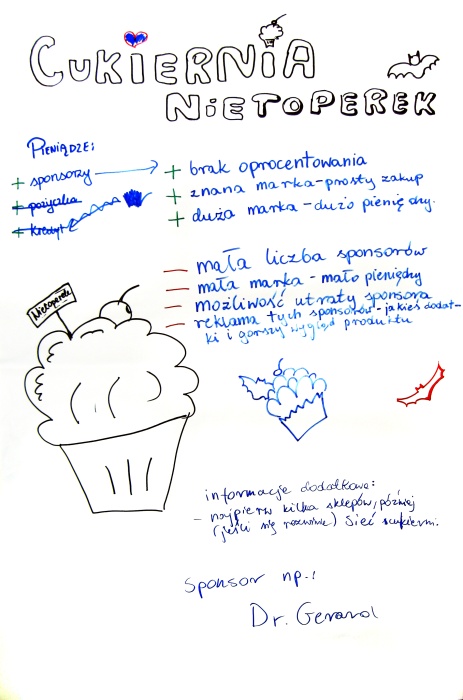 CUKIERNIA
NIETOPEREK
PIENIĄDZE:
+ sponsorzy
+ pożyczka
+ kredyt
+ brak oprocentowania
+ znana marka - prosty zakup
+ duża marka - dużo pienię dzy.
— mała liczba sponsorów
— mała marka - mało pieniędzy
— możliwość utraty sponsora
— reklama tych sponsorów - jakieś dodat-
ki i gorszy wygląd produktu
Nietoperek
informacje dodatkowe:
- najpierw kilka sklepów, później
(jeśli się rozwinie) sieć cukierni.
Sponsor np.:
Dr. Gerard